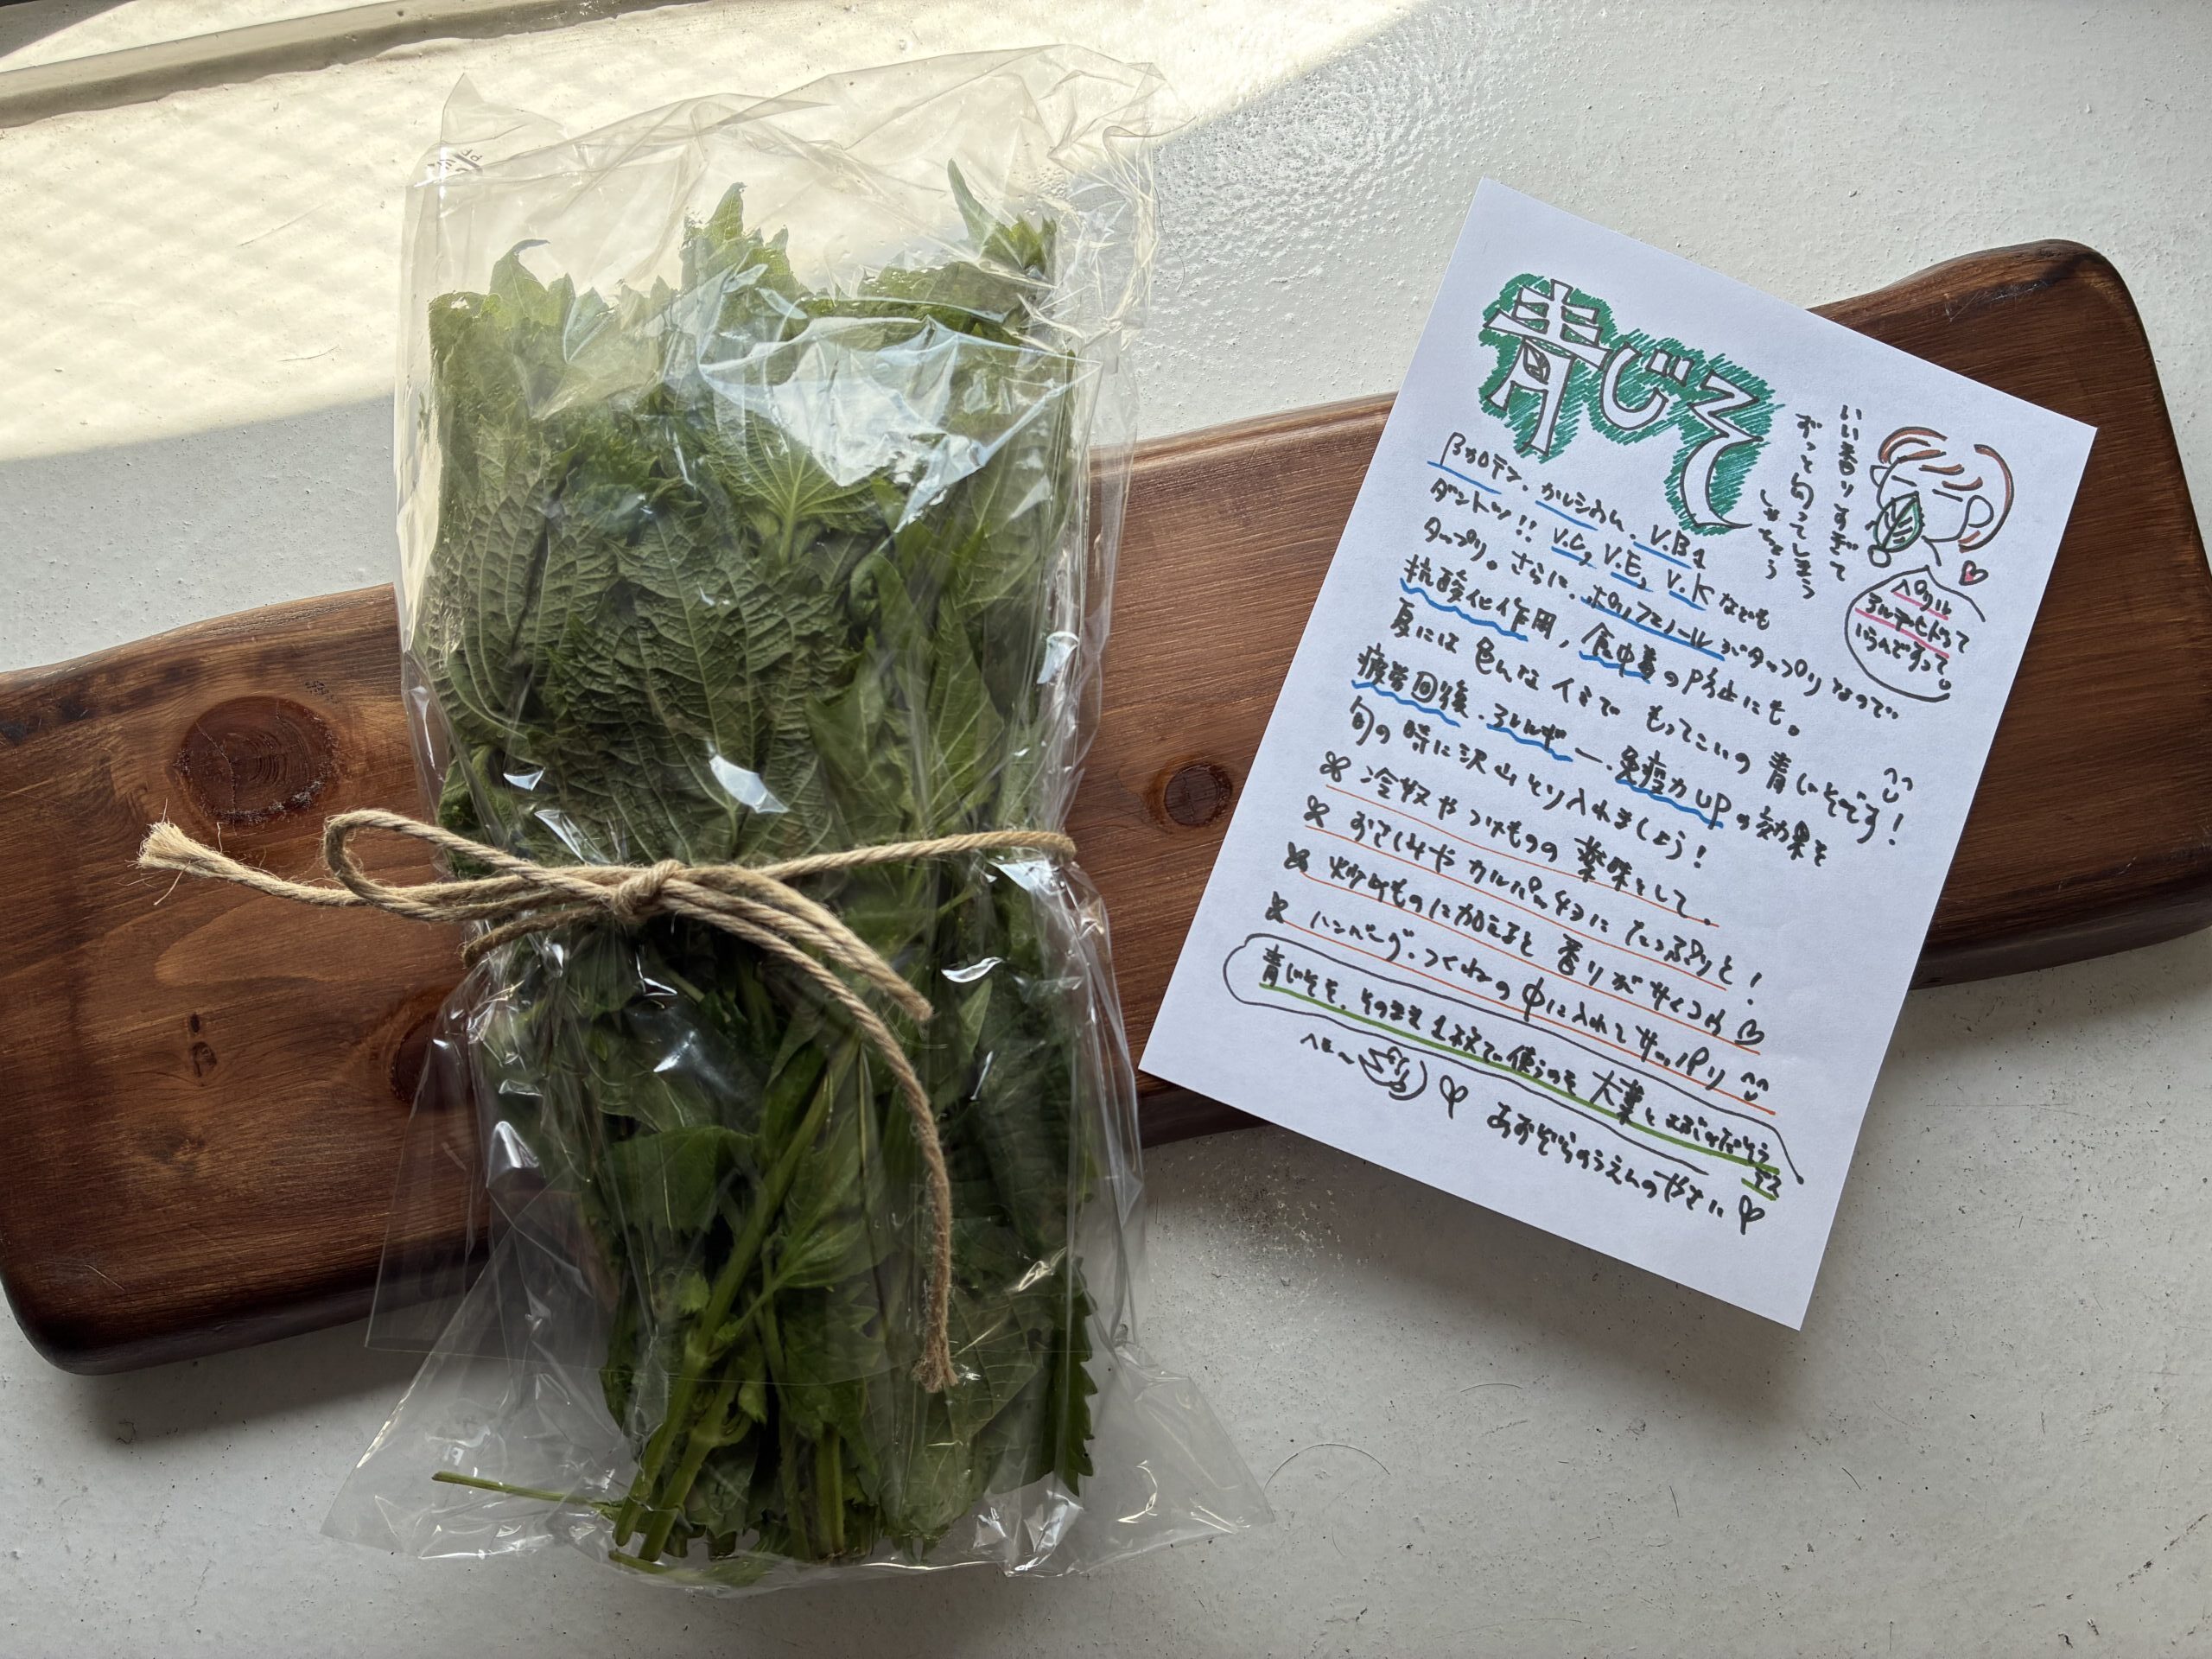 青じそ
いい香りすぎて
ずっと匂ってしまう
しあわせ
ペリル
アルデヒドって
いうんですって。
βカロテン、カルシウム、V.B1
ダントツ!! V.C, V.E, V.K なども
タップリ。さらに、ポリフェノールがタップリなので
抗酸化作用, 食中毒の防止にも。
夏には色んなイミでもってこいの青じそです!
疲労回復・アレルギー・免疫力UPの効果を
旬の時に沢山とり入れましょう!
冷奴やつけものの薬味として。
おさしみやカルパッチョにたっぷりと!
炒めものに加えると香りがサイコウ♡
ハンバーグ、つくねの中に入れてサッパリ
青じそを、そのまま1枚で使うのを大葉とよぶんだそう
デス
へぇ〜
あおぞらのうえんのやさい